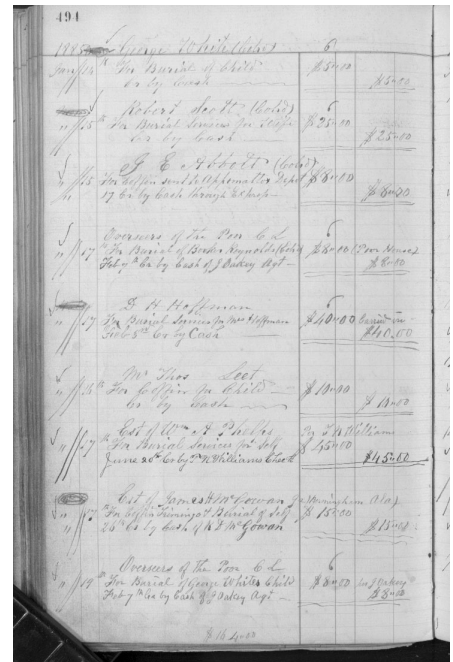 494
1885 George White (Cold) 6
Jany 14th For Burial of Child $5-00
Cr by Cash $5-00
Robert Scott (Cold) 6
" 15th For Burial Services for Wife $25-00
Cr by Cash $25-00
G E Abbott (Cold)
" 15 For Coffin send to Appomattox Depot $8-00
17 Cr by Cash through Express $8-00
Overseers of the Poor C L 6
" 17th For Burial of Booker Reynolds (Cold) $8-00 (Poor House)
Feby 7th Cr by Cash of J Oakey Agt $8-00
G H Hoffman 6
" 17 For Burial Services for Mrs Hoffman $40-00
Feb 5th Cr by Cash $40-00
Mr Thos Leet
" 16th For Coffin for Child $10-00
Cr by Cash $10-00
Est of Wm A Phelps Pr T N Williams
" 17th For Burial Services for Self $45-00
June 20th Cr by T N Williams Check $45-00
Est of James H McGowan Birmingham Ala)
" 17th For Coffin Trimings & Burial of Self $15-00
" 26th Cr by Cash of K D McGowan $15-00
Overseers of the Poor C L 6
" 19th For Burial of George Whites Child $8-00 J Oakey
Feby 7th Cr by Cash of J Oakey Agt $8-00
$164-00